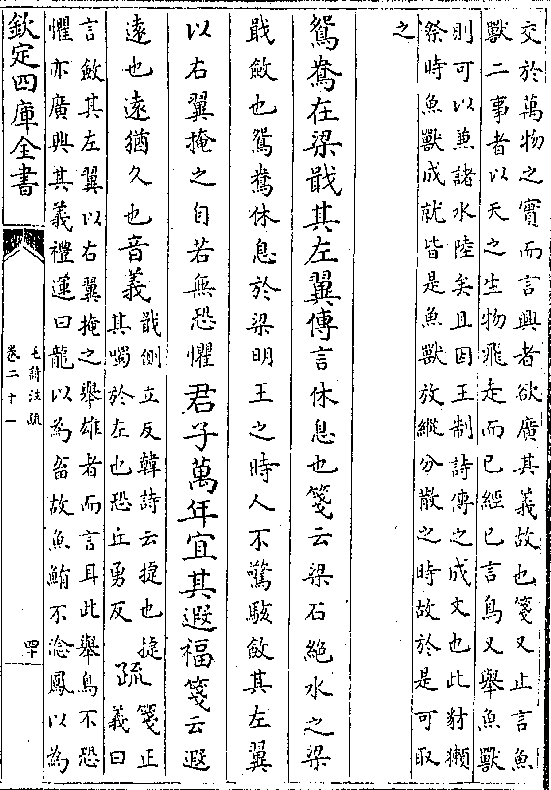 交於萬物之實而言興者欲廣其義故也箋又止言魚
獸二事者以天之生物飛走而已經已言鳥又舉魚獸
則可以兼諸水陸矣且因王制詩傳之成文也此豺獺
祭時魚獸成就皆是魚獸放縱分散之時故於是可取
之
鴛鴦在梁戢其左翼傳言休息也箋云梁石絶水之梁
戢斂也鴛鴦休息於梁明王之時人不驚駭斂其左翼
以右翼掩之自若無恐懼君子萬年宜其遐福箋云遐
遠也遠猶久也音義戢側立反韓詩云捷也捷
其噣於左也恐丘勇反疏箋正
義曰
言斂其左翼以右翼掩之舉雄者而言耳此舉鳥不恐
懼亦廣興其義禮運曰龍以為畜故魚鮪不淰鳳以為
欽定四庫全書
毛詩注疏
卷二十一
四十